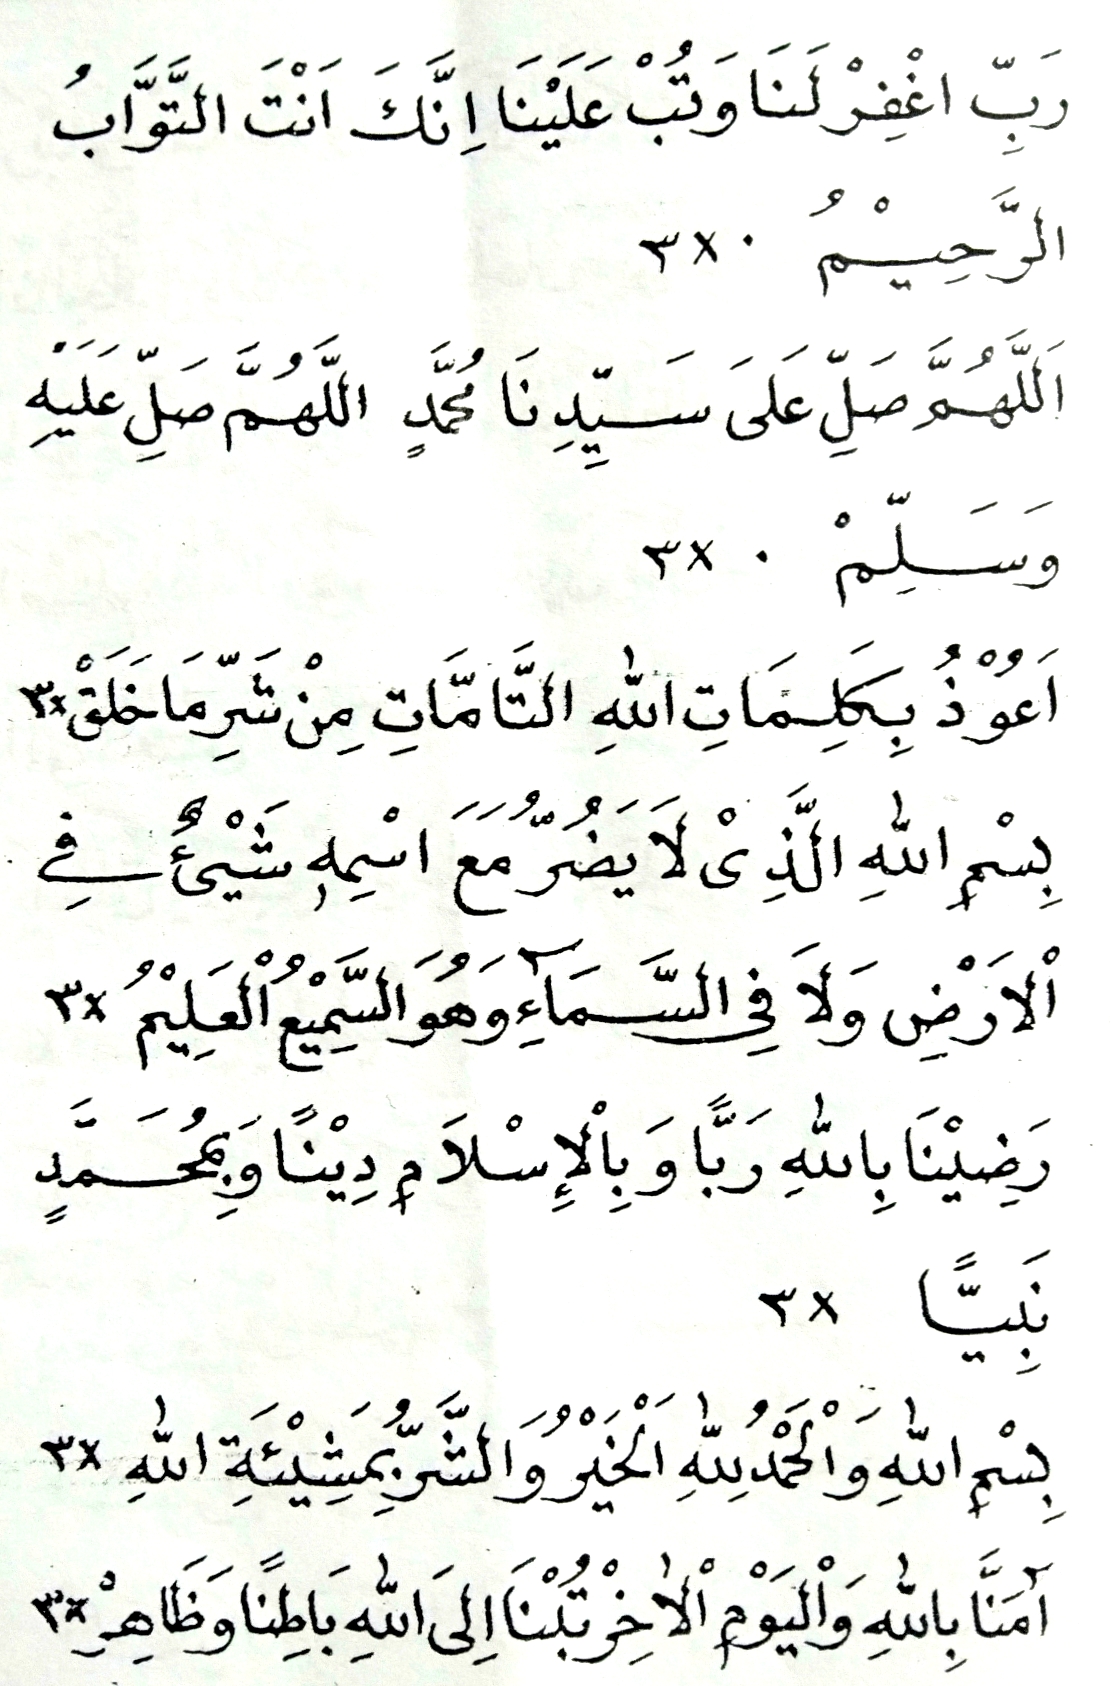 رَبِّ اغْفِرْ لَنَا وَتُبْ عَلَيْنَا اِنَّكَ اَنْتَ التَّوَّابُ
الرَّحِيْمُ ۰ ×٣
اَللّٰهُمَّ صَلِّ عَلَى سَيِّدِنَا مُحَمَّدٍ اللّٰهُمَّ صَلِّ عَلَيْهِ
وَسَلِّمْ ۰ ×٣
اَعُوْذُ بِكَلِمَاتِ اللهِ التَّامَّاتِ مِنْ شَرِّ مَا خَلَقْ ×٣
بِسْمِ اللهِ الَّذِىْ لَا يَضُرُّ مَعَ اسْمِهِ شَيْئٌ فِى
اْلاَرْضِ وَلَا فِى السَّمَآءِ وَهُوَ السَّمِيْعُ الْعَلِيْمُ ×٣
رَضِيْنَا بِاللهِ رَبًّا وَبِاْلإِسْلَامِ دِيْنًا وَبِمُحَمَّدٍ
نَبِيًّا ×٣
بِسْمِ اللهِ وَالْحَمْدُ لِلّٰهِ اَلْخَيْرُ وَالشَّرُّ بِمَشِيْئَةِ اللهِ ×٣
آمَنَّا بِاللهِ وَالْيَوْمِ اْلاٰخِرْ تُبْنَا اِلَى اللهِ بَاطِنًا وَظَاهِرْ ×٣